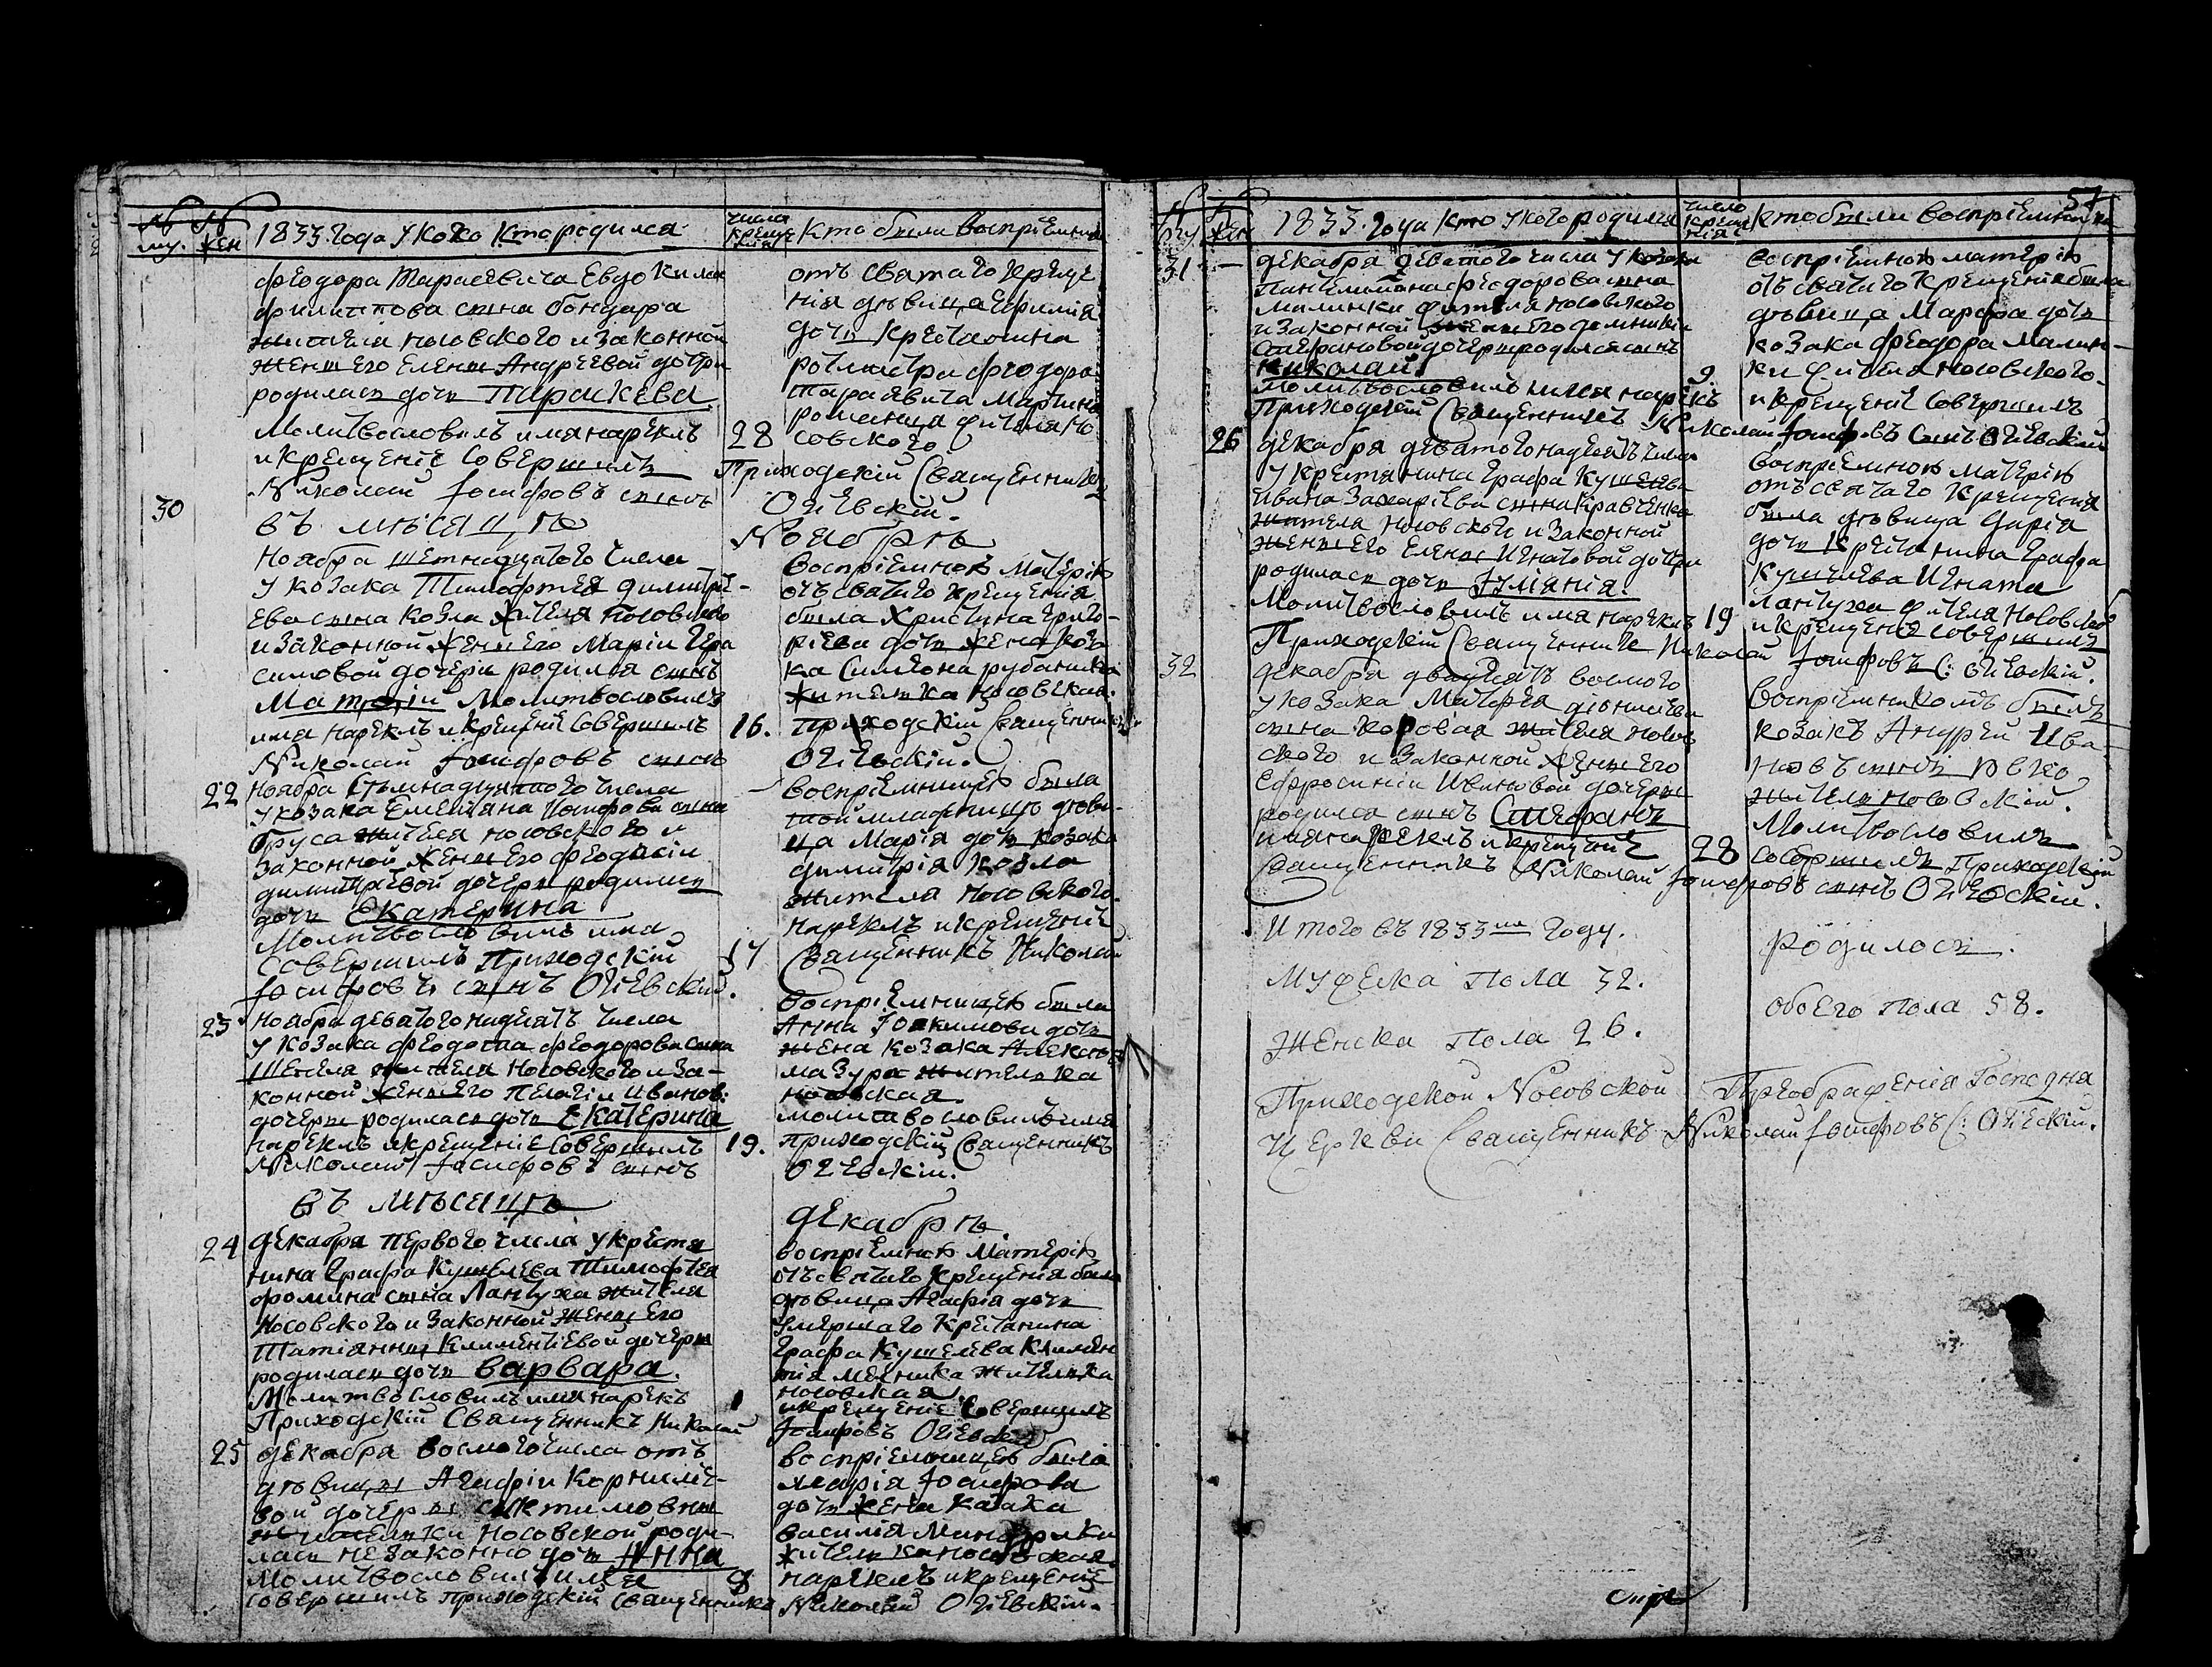 № му. № жен
1833 года у кого кто родился
числа крещения
кто были воспріемники
феодора Тарасевича Евдокима
филиппова сына бондара
жителя носовского и законной
жены его Елены Андреевой дочери
родилась дочь Параскева
Молитвословилъ имя нареклъ
и крещеніе совершилъ
Николай Іосифовъ сынъ
отъ святаго креще
нія дѣвица Ефимія
дочь крестянина
ротмистра феодора
Тарасевича Мартина
романца жителя но
28 совского
Приходскій Священникъ
Огіевскій.
30
въ мѣсяцѣ
Ноябрѣ
Ноября шестнадцатого числа
у козака Тимофтея димитрі-
ева сына козла жителя носовского
и законной жены его Маріи Гера
симовой дочери родился сынъ
Матѳій Молитвословилъ
имя нареклъ и крещеніе совершилъ
Николай Іосифовъ сынъ
воспріемною матерію
отъ святаго крещенія
была Христина григо-
ріева дочь жена коза
ка Симеона рубаника
жителька носовская.
16. приходскій Священникъ
Огіевскій.
22 Ноября семнадцятого числа
у козака Емелияна Іосифова сына
Бруса жителя носовского и
законной жены его феодосіи
димитріевой дочери родилась
дочь Екатерина
Молитвословилъ имя
совершилъ Приходскій
Іосифовъ сынъ Огіевскій.
воспріемницею была
дѣви-
ца Марія дочь козака
димитрія козла
жителя носовского.
нареклъ и крещеніе
17 Священникъ Николай
23 Ноября девятогонадцять числа
у козака феодота феодорова сына
Шевеля жителя носовского и за-
конной жены его Пелагіи Иванов:
дочери родилась дочь Екатерина
нареклъ и крещеніе совершилъ
Николай Іосифовъ сынъ
воспріемницею была
Анна Іоакимова дочь
жена козака Алексѣя
мазура жителька
носовская.
молитвословилъ имя
19. приходскій Священникъ
Огіевскій.
въ мѣсяцѣ
декабрѣ
24 декабря первого числа у крестя
нина графа Кушелева Тимофтея
фомина сына Лантуха жителя
носовского и законной жены его
Татіяны Климентіевой дочери
родилась дочь Варвара.
Молитвословилъ имя нарекъ
Приходскій Священникъ Николай
воспріемною матерію
отъ святаго крещенія была
дѣвица Агафія дочь
умершаго крестянина
графа Кушелева Климен
тія мѣсника жителька
носовская.
1 и крещеніе совершилъ
Іосифовъ Огіевскій
25 декабря восмого числа отъ
дѣвицы Агафіи Корниліе-
вой дочери
жительки носовской роди-
лась незаконно дочь Анна
Молитвословилъ имя
совершилъ приходскій Священникъ
воспріемницею была
Марія Іосифова
дочь жена казака
василія
жителька носовская.
8 нареклъ и крещеніе
Николай Огіевскій.
57
№ му № жен
1833. года кто у кого родился
число крещенія
кто были воспріемники
31 — декабря девятого числа у козака
Пантилимона феодорова сына
малинки жителя носовского
и законной жены его домникіи
Стефановой дочери родился сынъ
Николай.
Молитвословилъ имя нарекъ
Приходскій Священникъ
воспріемною матерію
отъ святаго крещенія была
дѣвица Марфа дочь
козака феодора Малин-
ки жителя носовского.
9. и крещеніе совершилъ
Николай Іосифовъ Сынъ Огіевскій
26 декабря девятогонадцять числа
у крестянина графа Кушелева
Ивана Захаріева сына кравченка
жителя носовского и законной
жены его Елены Игнатовой дочери
родилась дочь Іуліанія.
Молитвословилъ имя нареклъ
Приходскій Священникъ Николай
воспріемною матерію
отъ святаго крещенія
была дѣвица Дарія
дочь крестянина графа
Кушелева Игната
Лантуха жителя носовской
19 и крещеніе совершилъ
Іосифовъ С: Огіевскій.
32 декабря двадцять восмого
у козака Матфея діонисіева
сына коровая жителя носов
ского и законной жены его
Ефросиніи Ивановой дочери
родился сынъ Стефанъ
имя нареклъ и крещеніе
Священникъ Николай
воспріемникомъ былъ
козакъ Андрей Ива-
новъ сынъ
житель носовскій.
Молитвословилъ
28 совершилъ Приходскій
Іосифовъ сынъ Огіевскій.
Итого въ 1833мъ году.
родилось.
Мужеска пола 32.
Женска пола 26.
обоего пола 58.
Приходской Носовской Преображенія Господня
Церкви Священникъ Николай Іосифовъ С: Огіевскій.